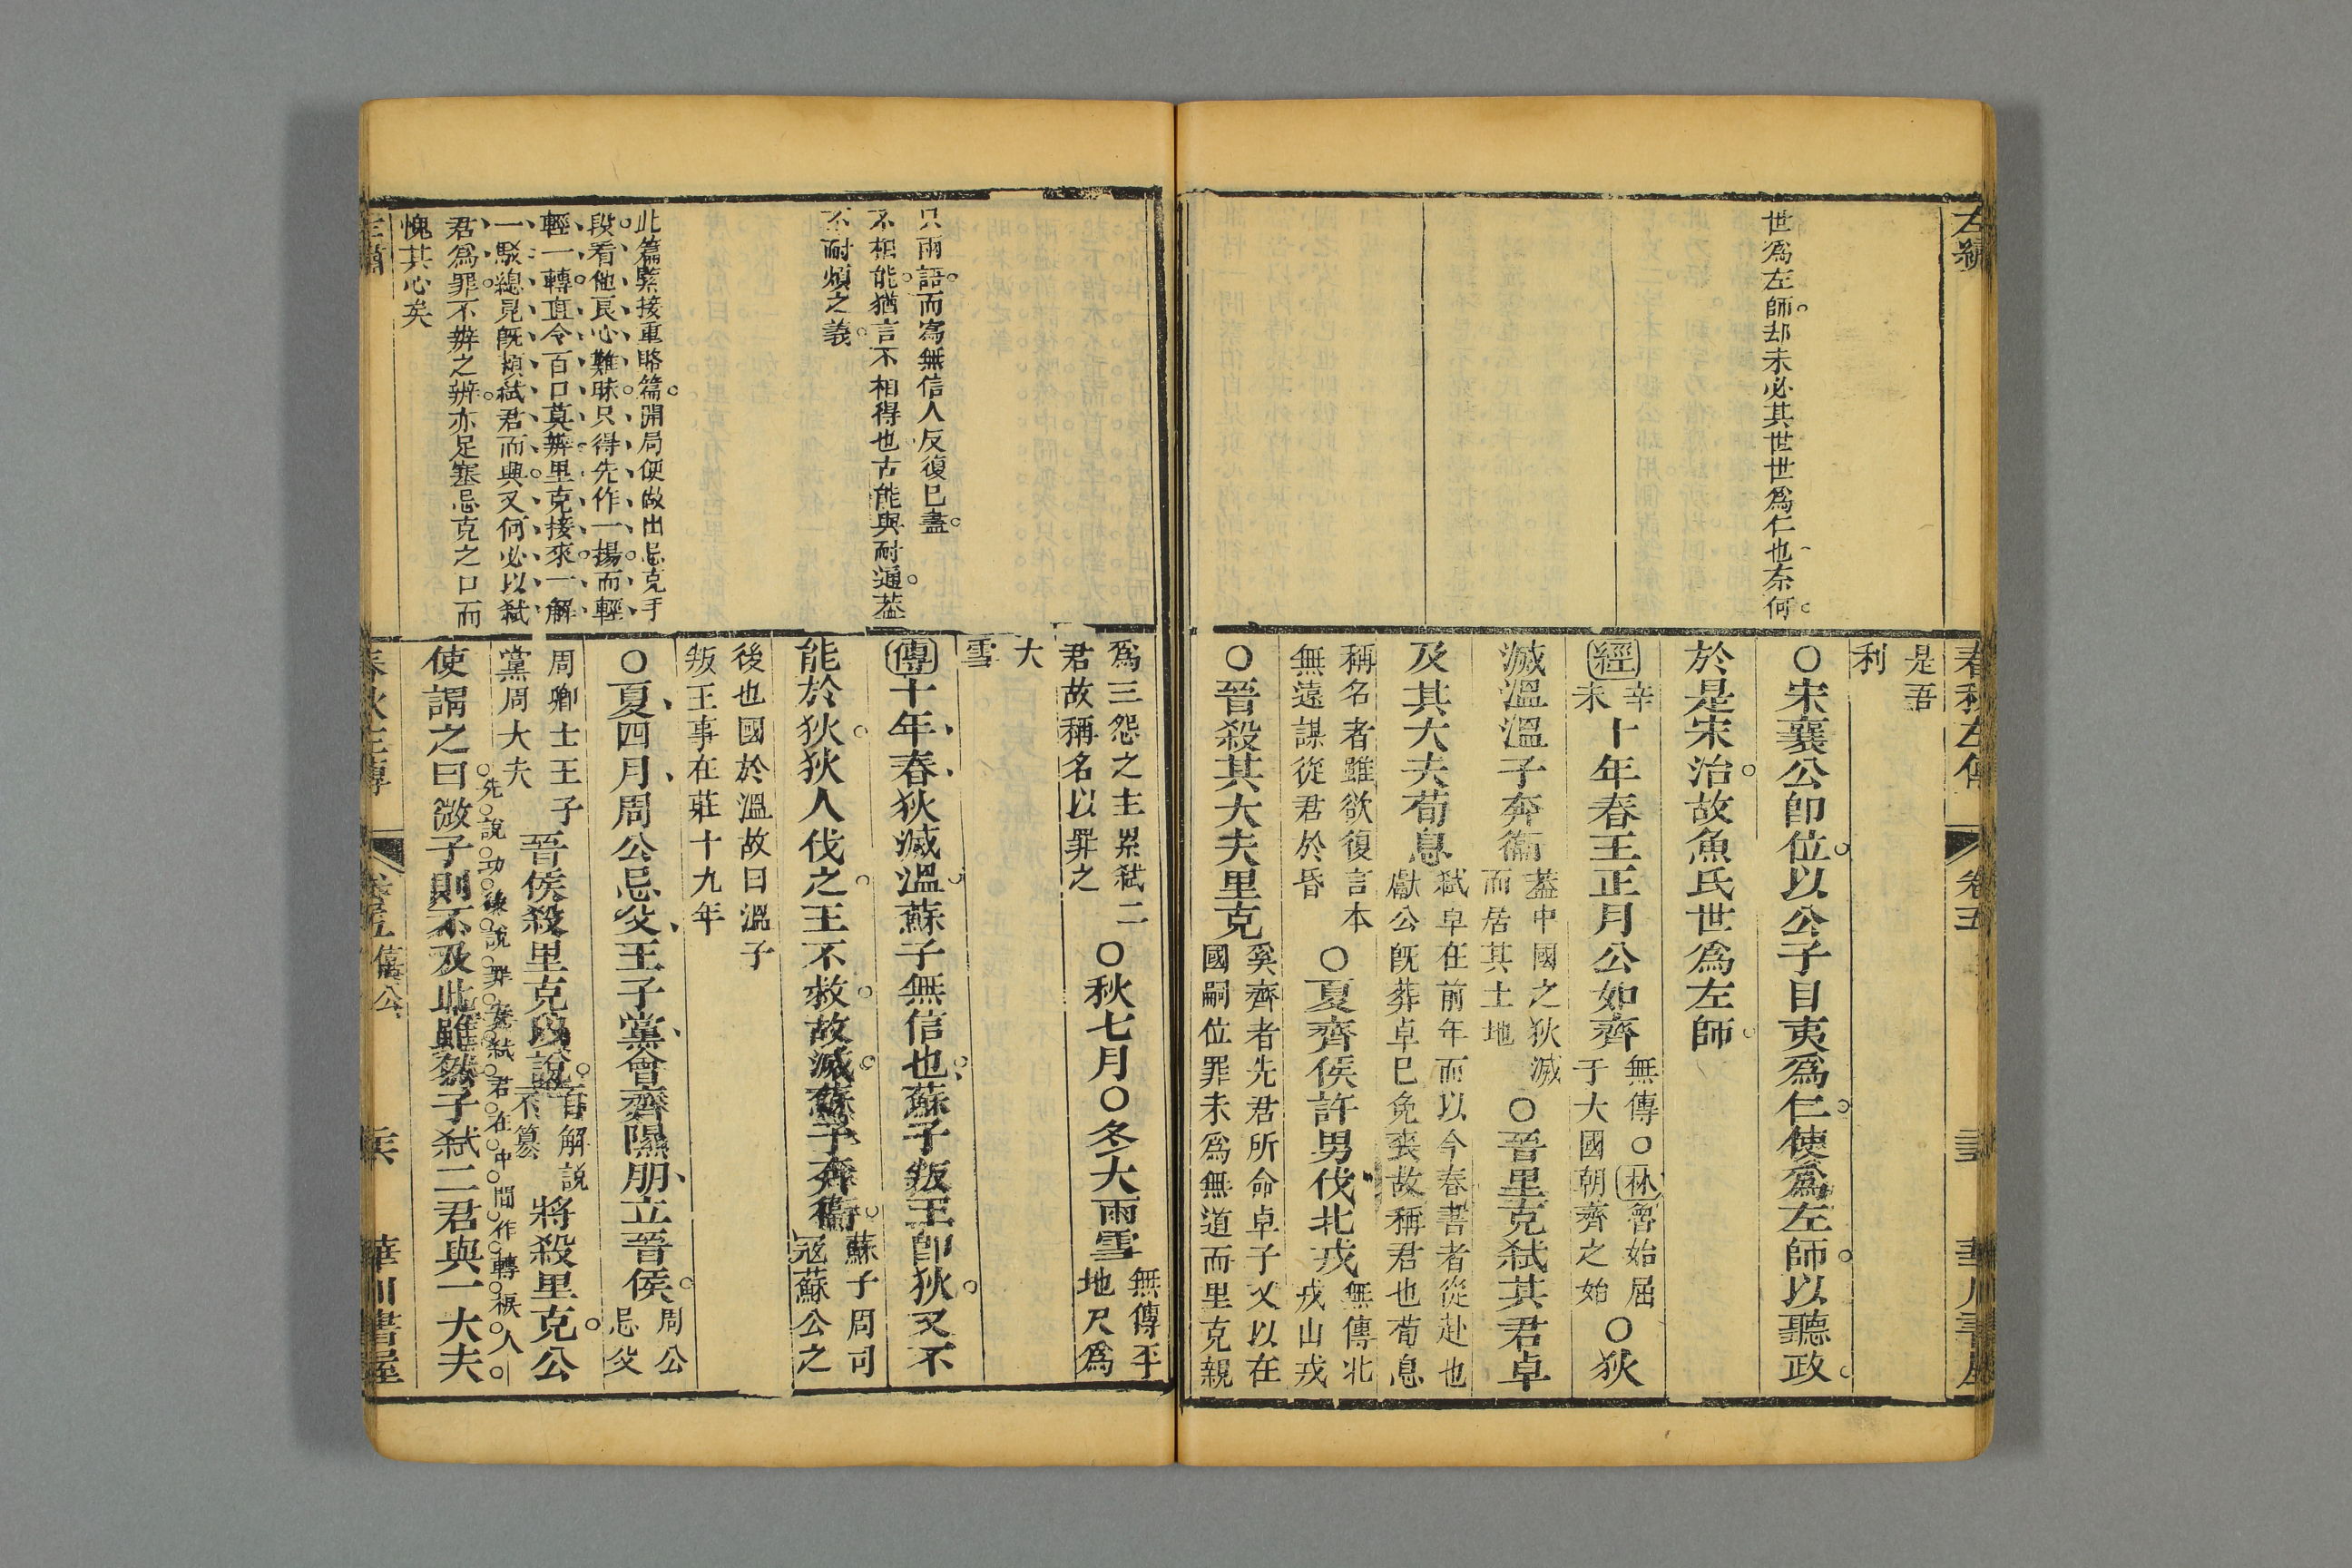 左繡
世爲左師却未必其世世爲仁也奈何
春秋左傳
卷五
是吾
利
○宋襄公卽位以公子目夷爲仁使爲左師以聽政
於是宋治故魚氏世爲左師
經辛未十年春王正月公如齊無傳○林魯始屈于大國朝齊之始○狄
滅溫溫子奔衞蓋中國之狄滅而居其土地○晉里克弑其君卓
及其大夫荀息弑卓在前年而以今春書者從赴也獻公旣葬卓已免喪故稱君也荀息
稱名者雖欲復言本無遠謀從君於昏○夏齊侯許男伐北戎無傳北戎山戎
○晉殺其大夫里克奚齊者先君所命卓子又以在國嗣位罪未爲無道而里克親
只兩語而寫無信人反復已盡
不相能猶言不相得也古能與耐通蓋
不耐煩之義
此篇緊接重賂篇開局便做出忌克手
段看他良心難昧只得先作一揚而輕
輕一轉直令百口莫辨里克接來一解
一駁總見旣煩弑君而興又何必以弑
君爲罪不辨之辨亦足塞忌克之口而
愧其心矣
爲三怨之主累弑二君故稱名以罪之○秋七月○冬大雨雪無傳平地尺爲
大雪
傳十年春狄滅溫蘇子無信也蘇子叛王卽狄又不
能於狄狄人伐之王不救故滅蘇子奔衞蘇子周司寇蘇公之
後也國於溫故曰溫子叛王事在莊十九年
○夏四月周公忌父王子黨會齊隰朋立晉侯周公忌父
周卿士王子黨周大夫晉侯殺里克以說自解說不篡將殺里克公
先說功後說罪妙弑君在中間作轉掖人
使謂之曰微子則不及此雖然子弑二君與一大夫
左繡
春秋左傳
卷五僖公
華川書屋